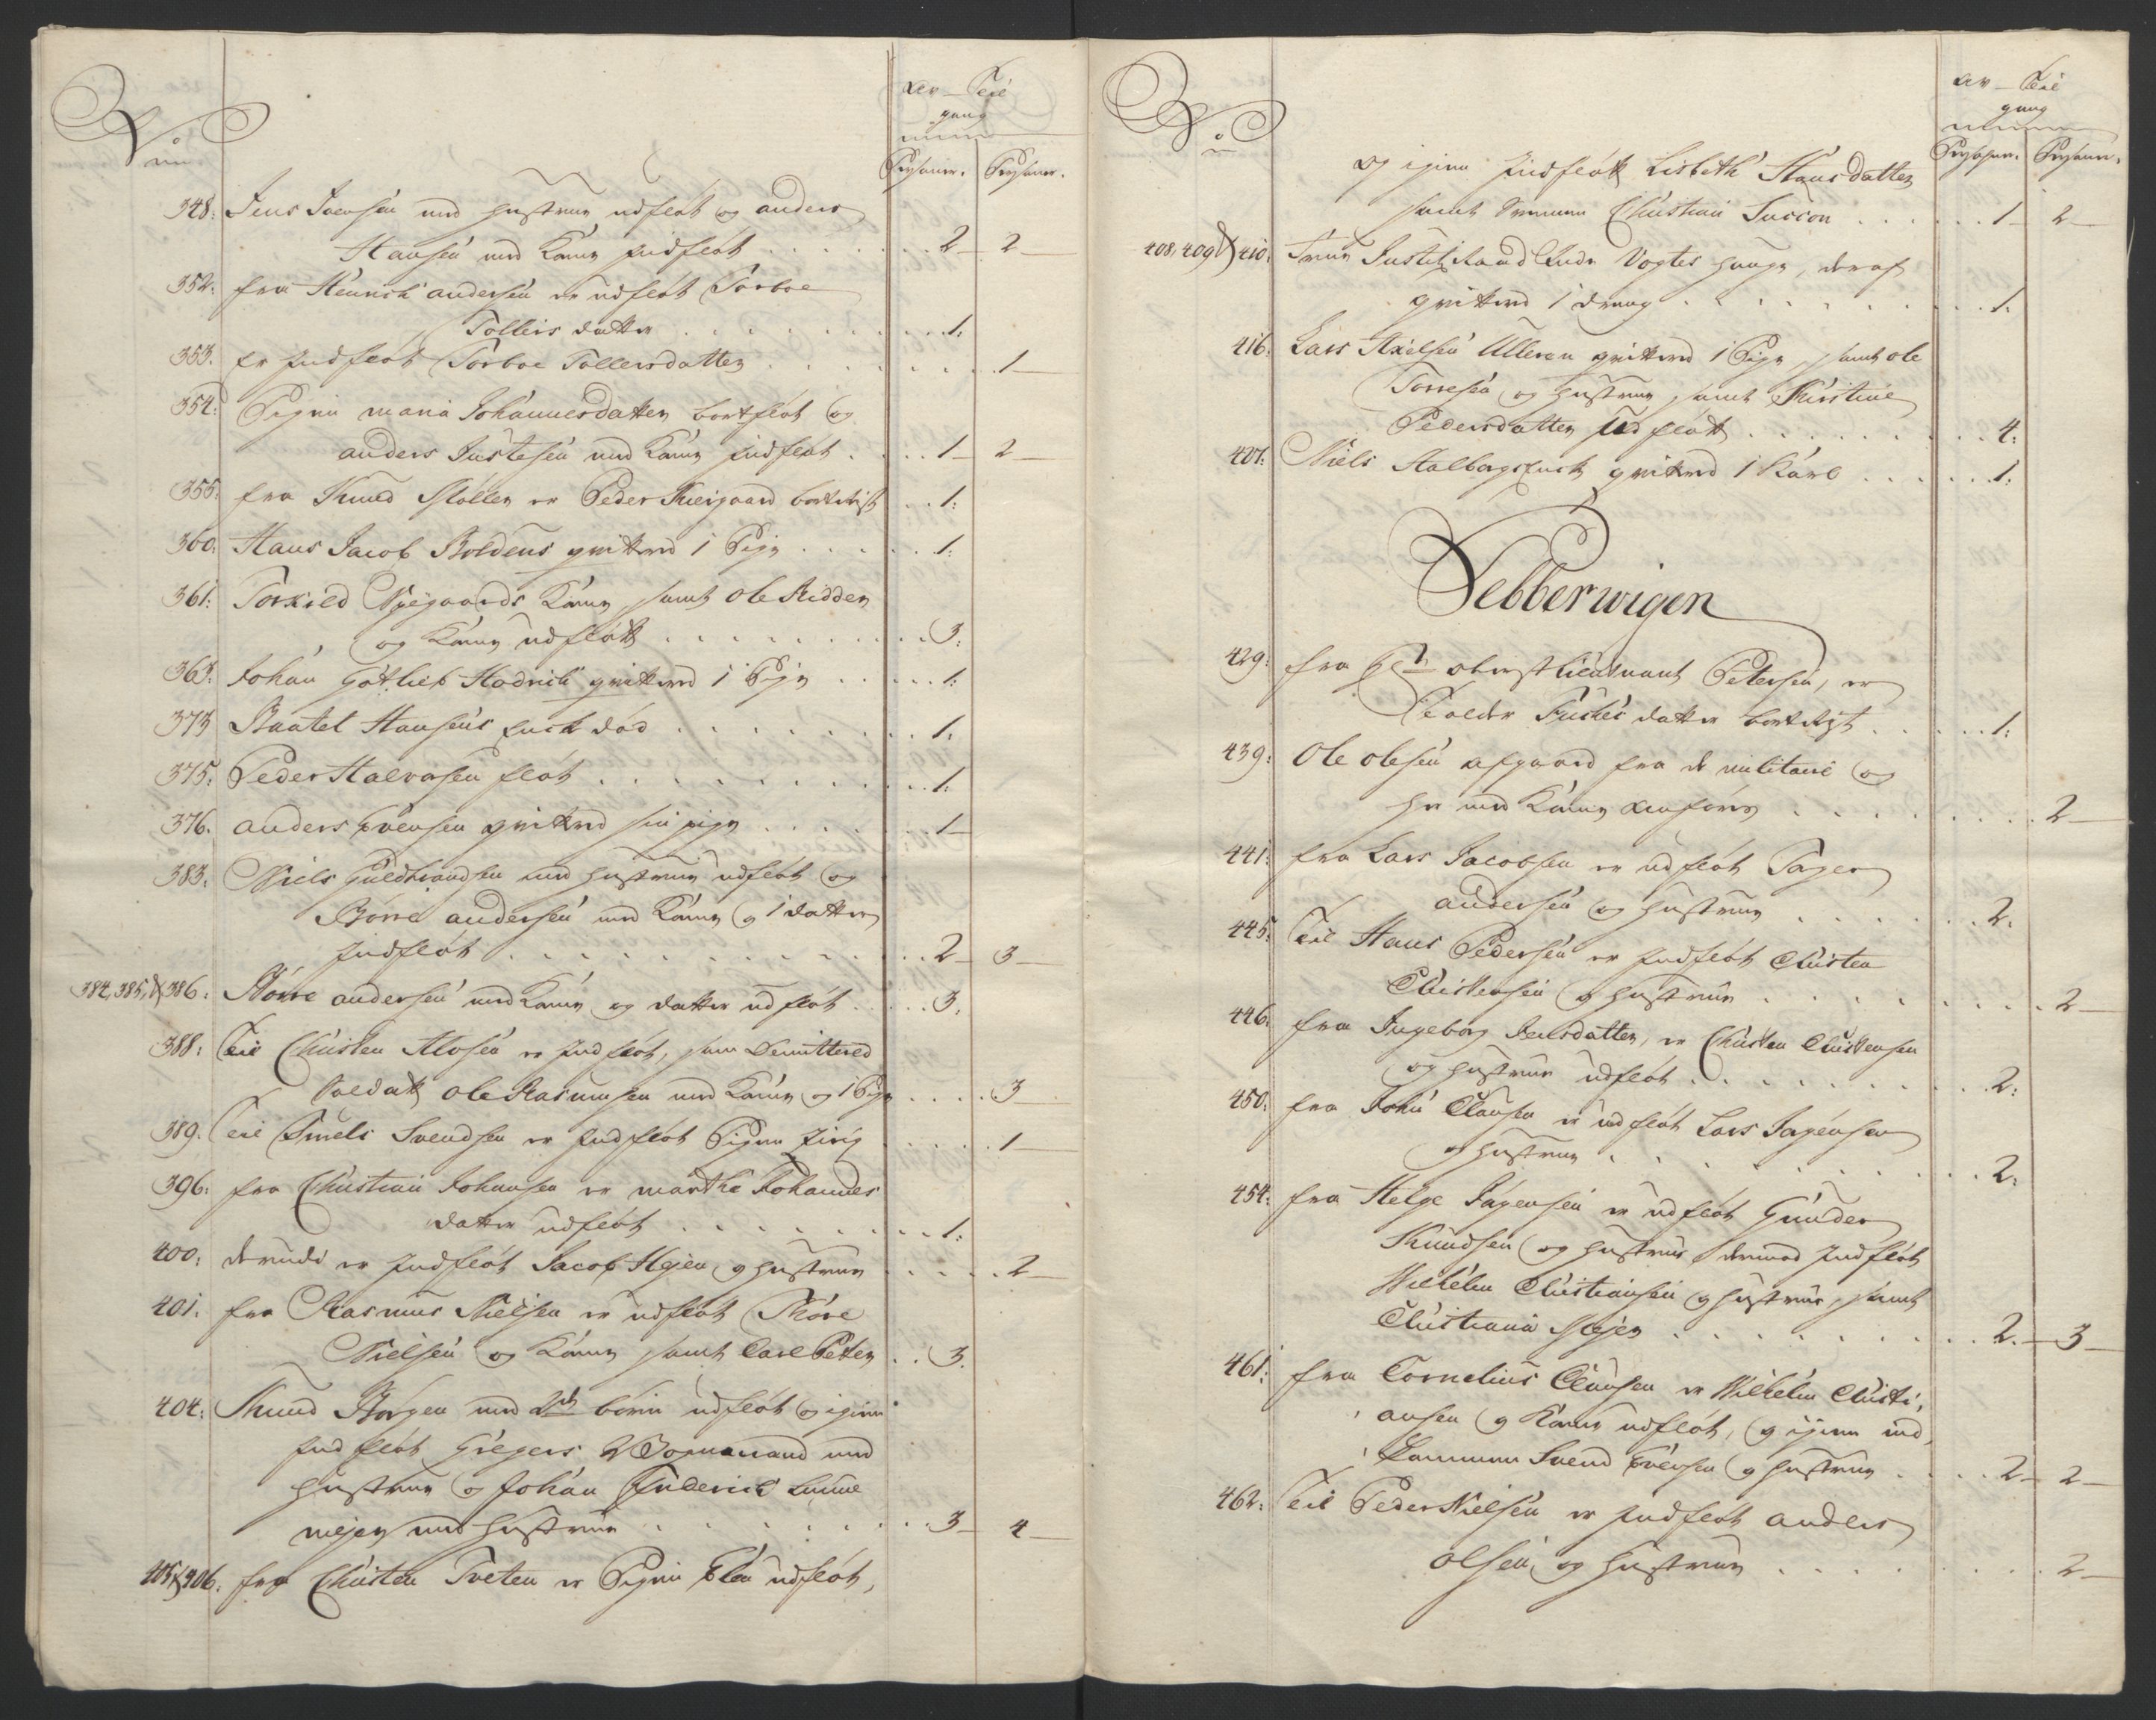 No
Av — Til
gang
Persohner. Persohner.
348: Jens Ivensen med hustrue udfløt og anders
Hansen med Kone indfløt . . . . . 2 — 2 —
352. fra Henrich andersen er udfløt Torboe
Tollers datter . . . . . 1:
353. er indfløt Torboe Tollersdatter . . . . . 1 —
354: Pigen maria Johannesdatter bortfløt og
anders Justesen med Kone indfløt . . . 1 — 2 —
355: fra Knud Møller er Peder Kiergaard bortreist . . 1:
360: Hans Jacob Boldens qvitered 1 Pige . . . . . 1:
361: Torkild Nyegaards Kone samt Ole Ridder
og Kone udfløtt . . . . . 3:
368: Johan Gotlieb Hadrich qvitered 1 Pige . . . . . 1:
373 Baatel Hansens Enck død . . . . . 1:
375: Peder Halvorsen fløt . . . . . 1:
376. anders Evensen qvitered sin pige . . . . . 1 —
383: Niels Guldbrandsen med hustrue udfløt og
Børre andersen med Kone og 1 datter
indfløt . . . . . 2 — 3 —
384, 385, & 386: Børre andersen med Kone og datter udfløt . . . . . 3:
388: Til Christen Alvsen er indfløt, som Demittered
Soldatt Ole Rasmusen med Kone og 1 Pige . . . . 3 —
389. Til Truels Svendsen er indfløt Pigen Zirig . . . . 1 —
396: fra Christian Johansen er martha Johannes
datter udfløt . . . . . 1:
400: desuden er indfløt Jacob Mejer og hustrue . . . . 2 —
401: fra Rasmus Nielsen er udfløt Thore
Nielsen og Kone samt Carl Peter . . 3.
404: Knud Børgen med 2de børn udfløt og igien
indfløt Gregers Wognmand med
hustrue og Johan Friderich
mejer med hustrue . . . . . 3 — 4 —
405 & 406: fra Christen Tveten er Pigen Elen udfløt,
No
Av — Til
gang
Persohner. Persohner.
og igien indfløtt Lisbeth Hansdatter
samt Svennen Christian Succon . . . . . 1 — 2 —
408, 409 & 410: Frue Justitz Raad Vogtes hauge, deraf
qvitered 1 dreng . . . . . 1.
416: Lars Axelsen Ulleren qvitered 1 Pige, samt ole
Torresen og hustrue samt Kirstine
Pedersdatter udfløtt . . . . . 4:
427: Niels Aalborgs Enck qvitered 1 Karl . . . . . 1:
Tebberwigen
429: fra Hr oberstlieutnant Petersen, er
datter bortreist . . . . . 1:
439: Ole olesen afgaaed fra de militaire og
her med Kone anføres . . . . . 2 —
441: fra Lars Jacobsen er udfløt Tager
andersen og hustrue . . . . . 2.
445: Til Hans Pedersen er indfløt Christen
Christensen og hustrue . . . . . 2 —
446: fra Ingeborg Jensdatter, er Christen Christensen
og hustrue udfløt . . . . . 2:
450: fra John Clausen er udfløt Lars Jørgensen
og hustrue . . . . . 2:
454: fra Helge Jørgensen er udfløt Gunder
Knudsen og hustrue derimod indfløt
Wilhelm Christiansen og hustrue, samt
Christiana Mejer . . . . . 2. — 3 —
461: fra Cornelius Clausen er Wilhelm Christi,
ansen og Kone udfløt, og igien ind,
kommen Svend Evensen og hustrue . . . . 2 — 2 —
462: Til Peder Nielsen er indfløt anders
olsen og hustrue . . . . . 2 —